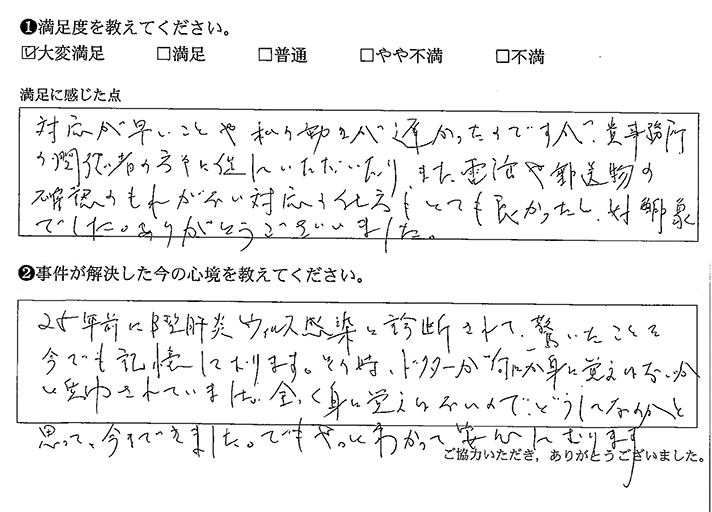 ❶満足度を教えてください。
☑大変満足 □満足 □普通 □やや不満 □不満
満足に感じた点
対応が早いことや私の動きが遅かったのですが、貴事務所
の関係者の方々に促していただいたり、また電話や郵送物の
確認のもれがない対応の仕方もとても良かったし、好印象
でした。ありがとうございました。
❷事件が解決した今の心境を教えてください。
25年前にB型肝炎ウィルス感染と診断されて、驚いたことを
今でも記憶しております。その時、ドクターが何か身に覚えはないか
と されていました。全く身に覚えはないので、どうしてなのかと
思って、今まできました。でもやっとわかって安心しております
ご協力いただき，ありがとうございました。